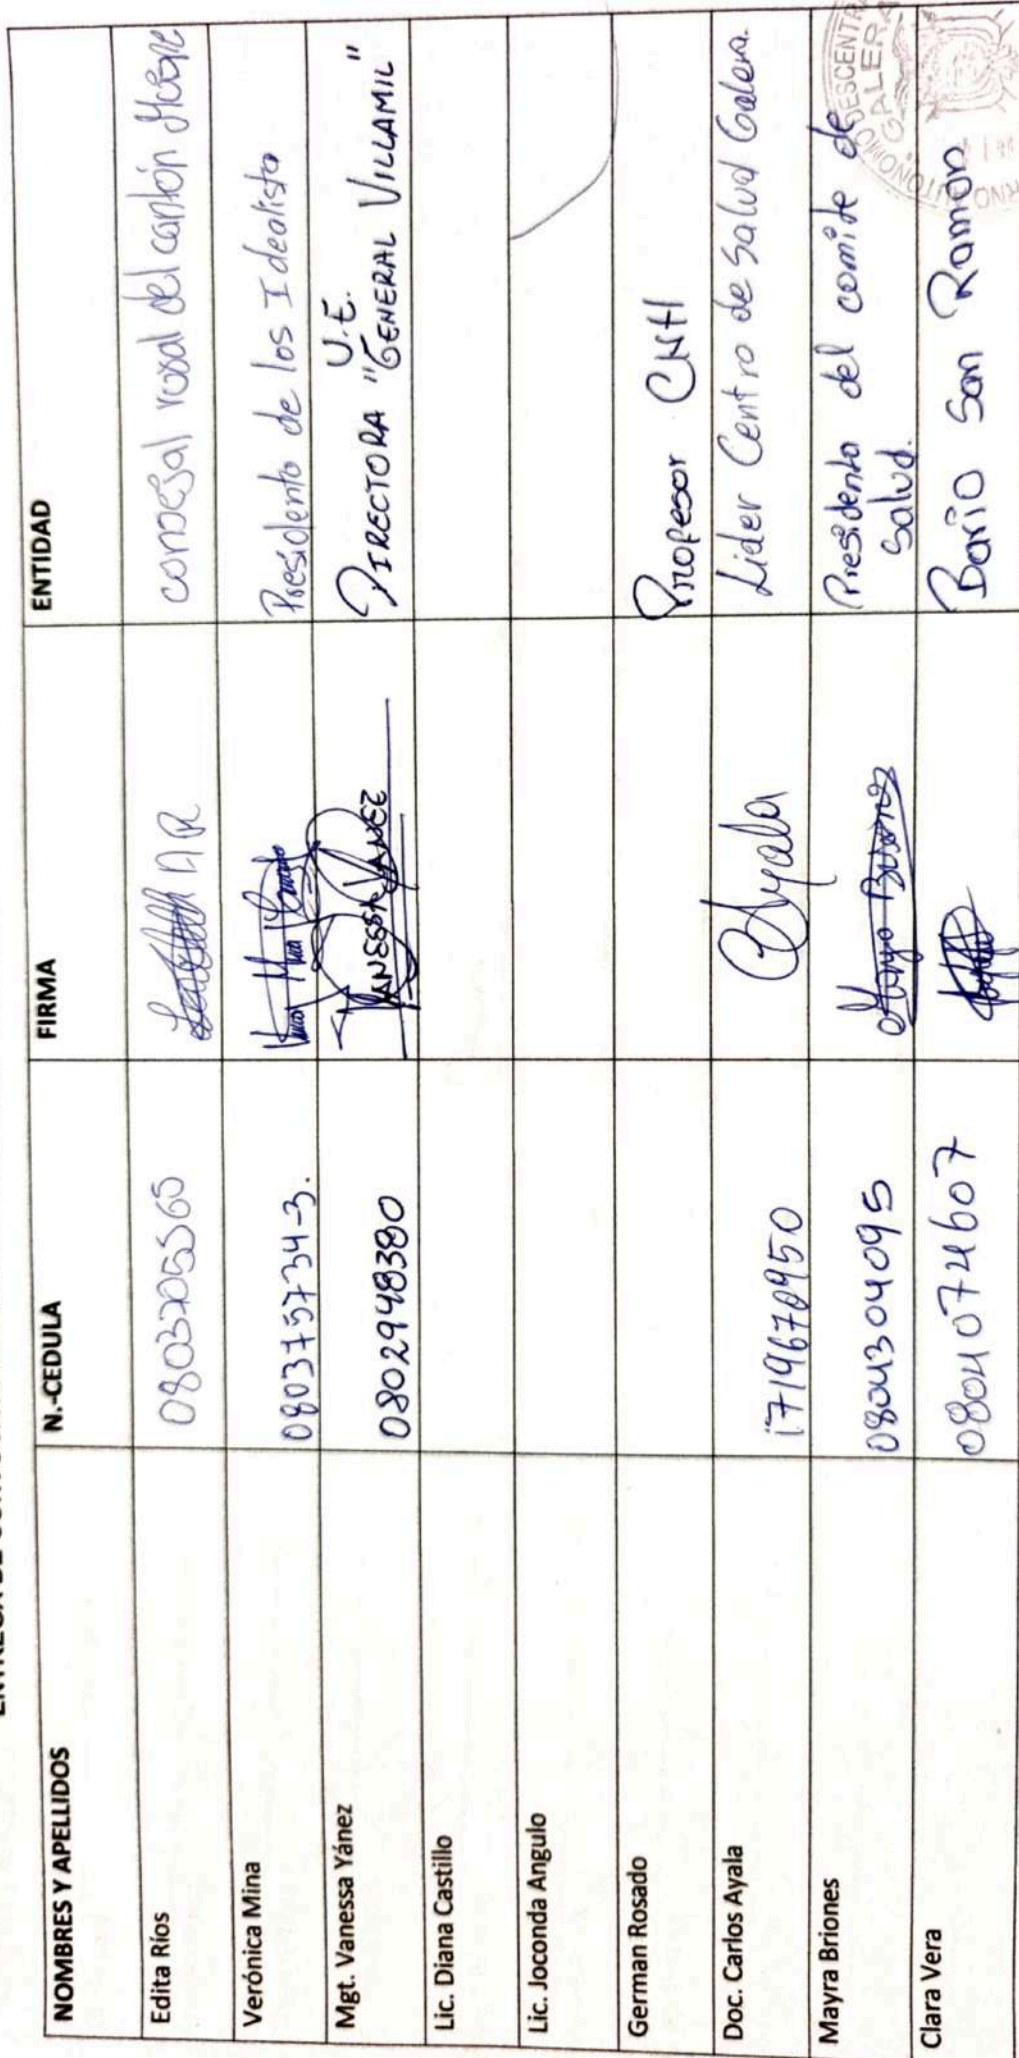 NOMBRES Y APELLIDOS N.-CEDULA FIRMA ENTIDAD
Edita Ríos 0803205565 concejal rural del cantón
Verónica Mina 080375734-3. Presidenta de los Idealista
Mgt. Vanessa Yánez 0802948380 VANESSA YANEZ DIRECTORA U.E. "GENERAL VILLAMIL"
Lic. Diana Castillo
Lic. Joconda Angulo
German Rosado Profesor CNH
Doc. Carlos Ayala 1719670950 CAyala Lider Centro de Salud Galera.
Mayra Briones 0804304095 Presidenta del comite de
Salud.
Clara Vera 0804074607 Bario San Ramón
GALERA